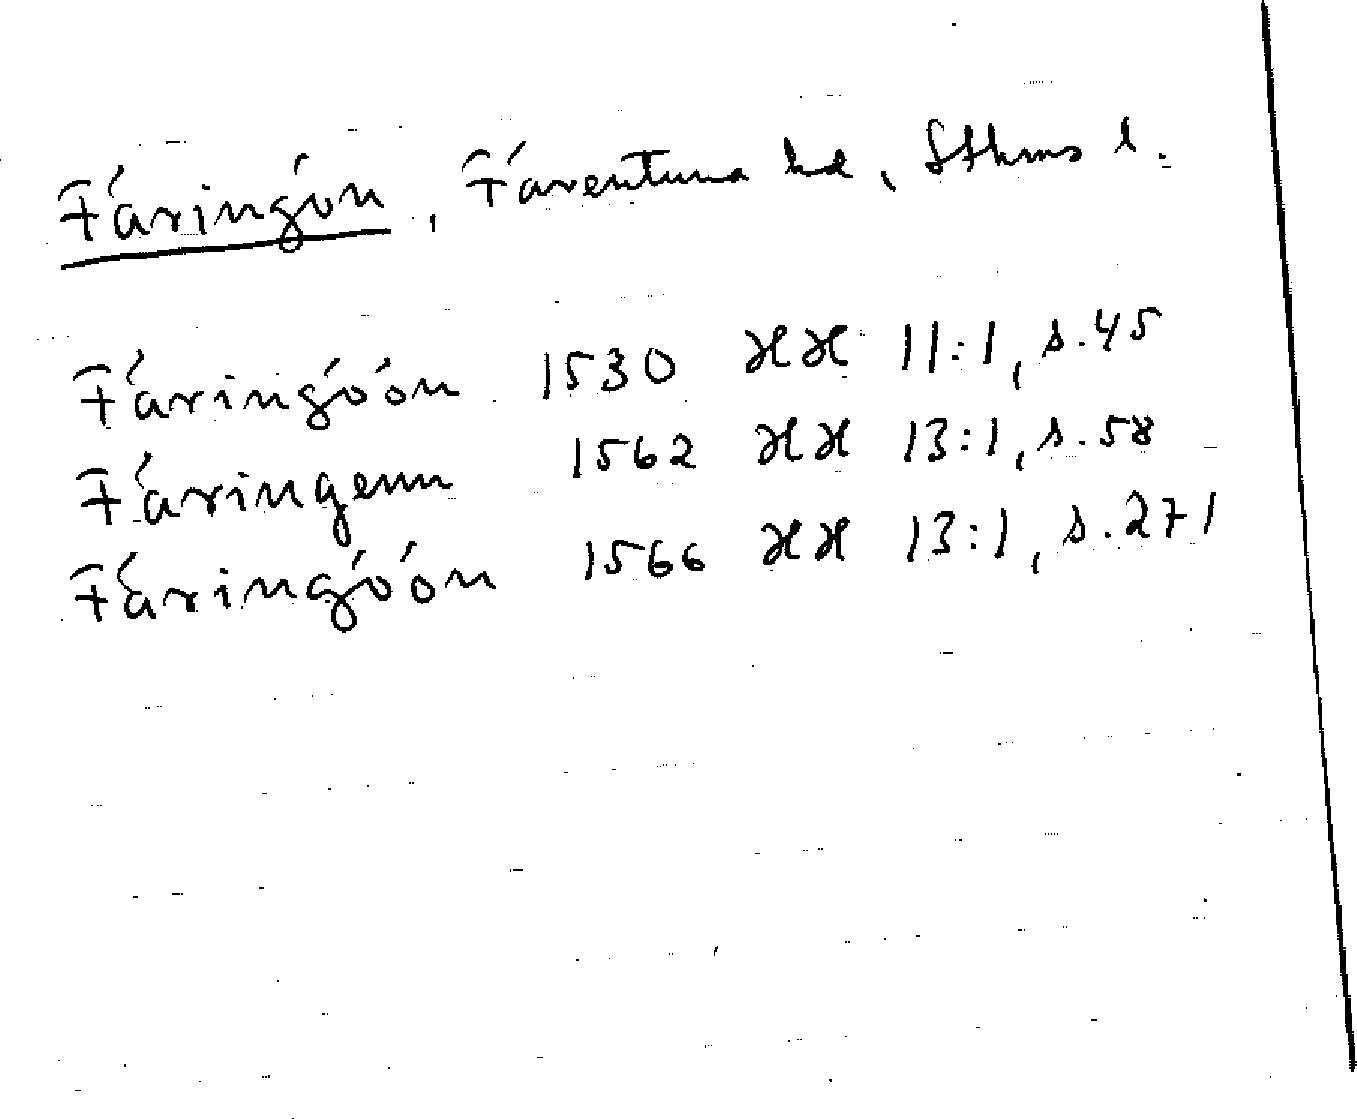 Färingön, Färentuna hd, Sthms l.
Färingöön 1530 HH 11:1, s.45
Färingenn 1562 HH 13:1, s.58
Färingöön 1566 HH 13:1, s.271